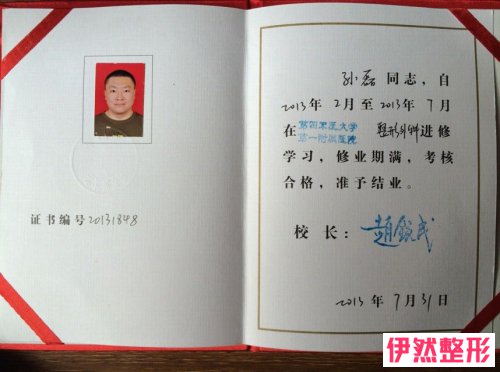 证书编号20131848
孙磊同志，自
2013年2月至2013年7月
在第四军医大学第一附属医院整形外科进修
学习，修业期满，考核
合格，准予结业。
校长：赵铱民
2013年7月31日
伊然整形